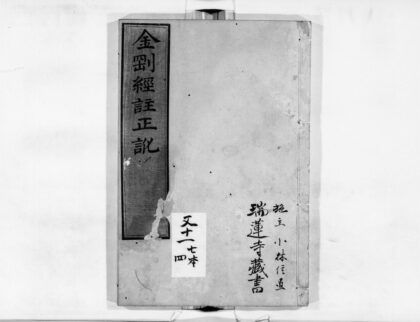 金剛經註正訛
施主 小林信直
瑞蓮寺藏書
又十一
七本
四